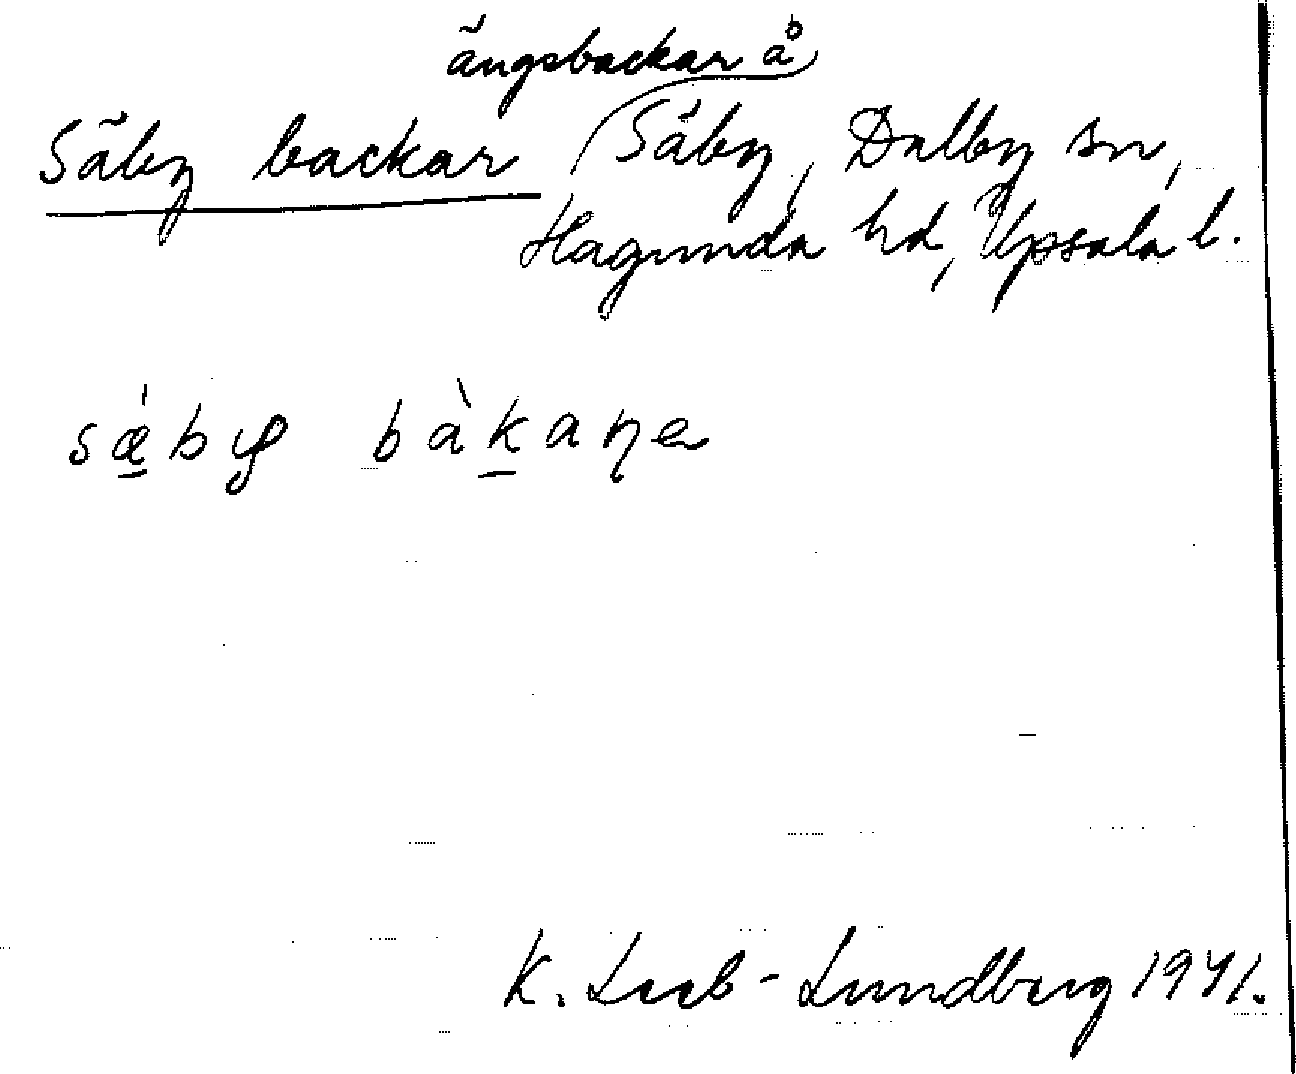 ängsbackar å
Säby backar Säby, Dalby sn,
Hagunda hd, Upsala l.
sǽ̲by bàk̲aɳe
K. Leeb-Lundberg 1941.